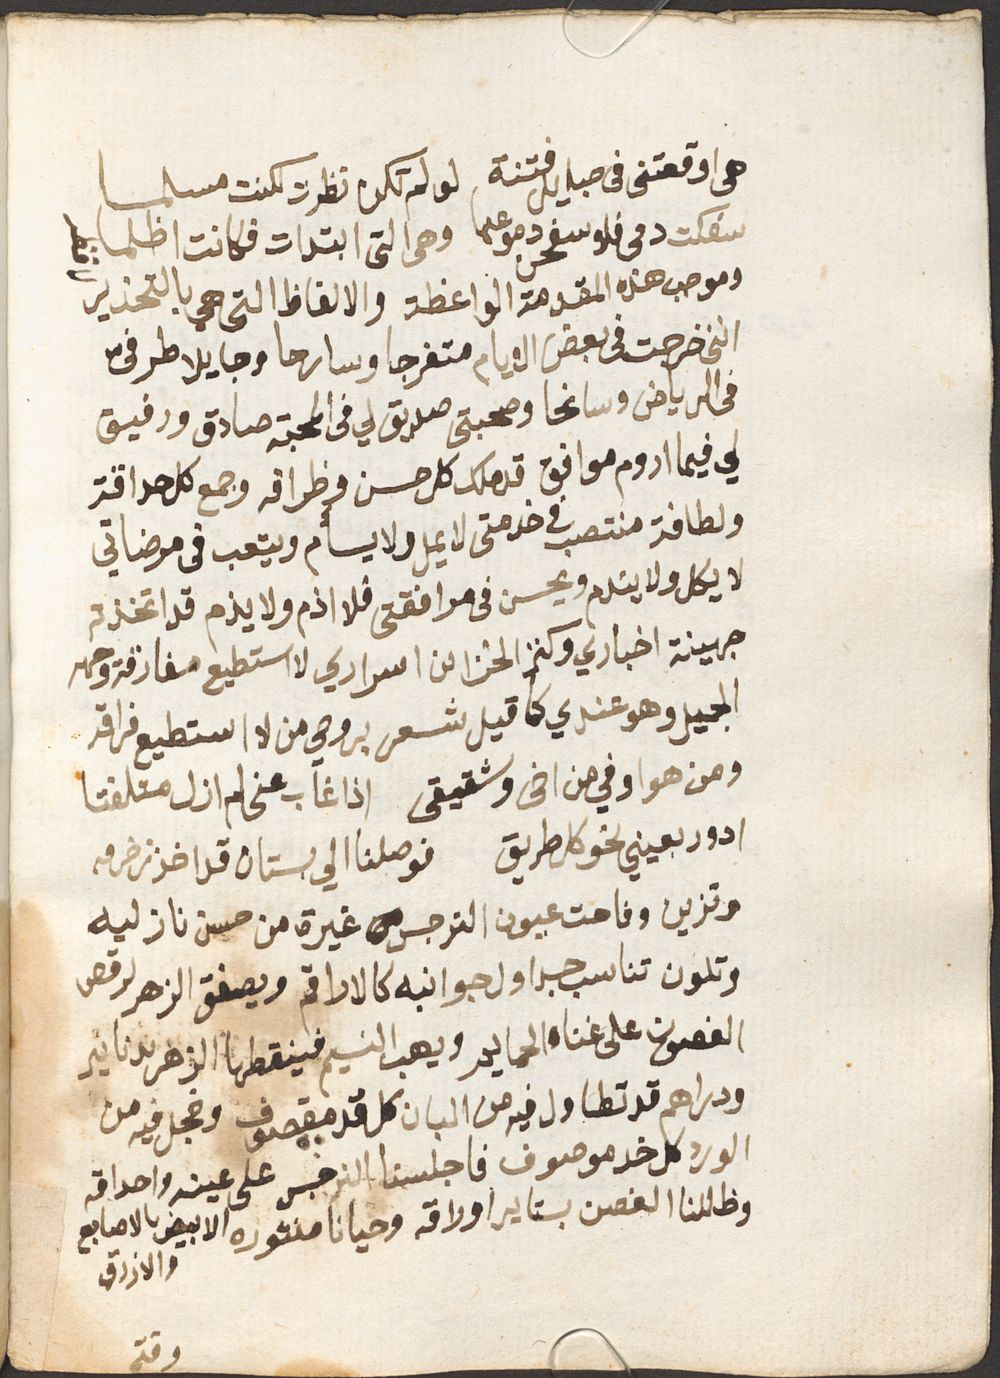 هي اوقعتني في حبايل فتنة لو لم تكن نظرت لكنت مسلما
سفكت دمي فلاسفحن دموعها وهي التي ابتدات فكانت اظلما
وموجب هذه المقدمة الواعظة والالفاظ التي هي بالتحذير
انني خرجت في بعض الايام متفرجا وسارحا وجايلا طرفي
في الرياض وسانحا وصحبتي صديق لي في المحبة صادق ورفيق
لي فيما اروم موافق قد ملك كل حسن وظرافه وجمع كل حداقة
ولطافة منتصب في خدمتي لا يمل ولا يسأم ويتعب في مرضاتي
لا يكل ولا يندم ويحسن في مرافقتي فلا اذم ولا يذم قد اتخذته
جهينة اخباري وكنز الخزائن اسراري لا استطيع مفارقة وجهه
الجميل وهو عندي كما قيل شعر بروحي من لا استطيع فراقه
ومن هو اوفي من اخي وشقيقي اذا غاب عني لم ازل متلفتا
ادور بعيني نحو كل طريق فوصلنا الي بستان قد اخذ زخرفه
وتزين وفاحت عيون النرجس غيرة من حسن نازليه
وتلون تناسب جداول جوانبه كالاراقم ويصفق الزهر لرقص
الغصون على غناء الحمايم ويهب النسيم فينقطها الزهر بدنانير
ودراهم قد تطاول فيه من البان كل قد مقصوف وخجل فيه من
الورد كل خد موصوف فاجلسنا النرجس على عينه واحداقه
وظللنا الغصن بستاير اوراقه وحيانا منثوره الابيض بالاصابع
والازرق
وقتي